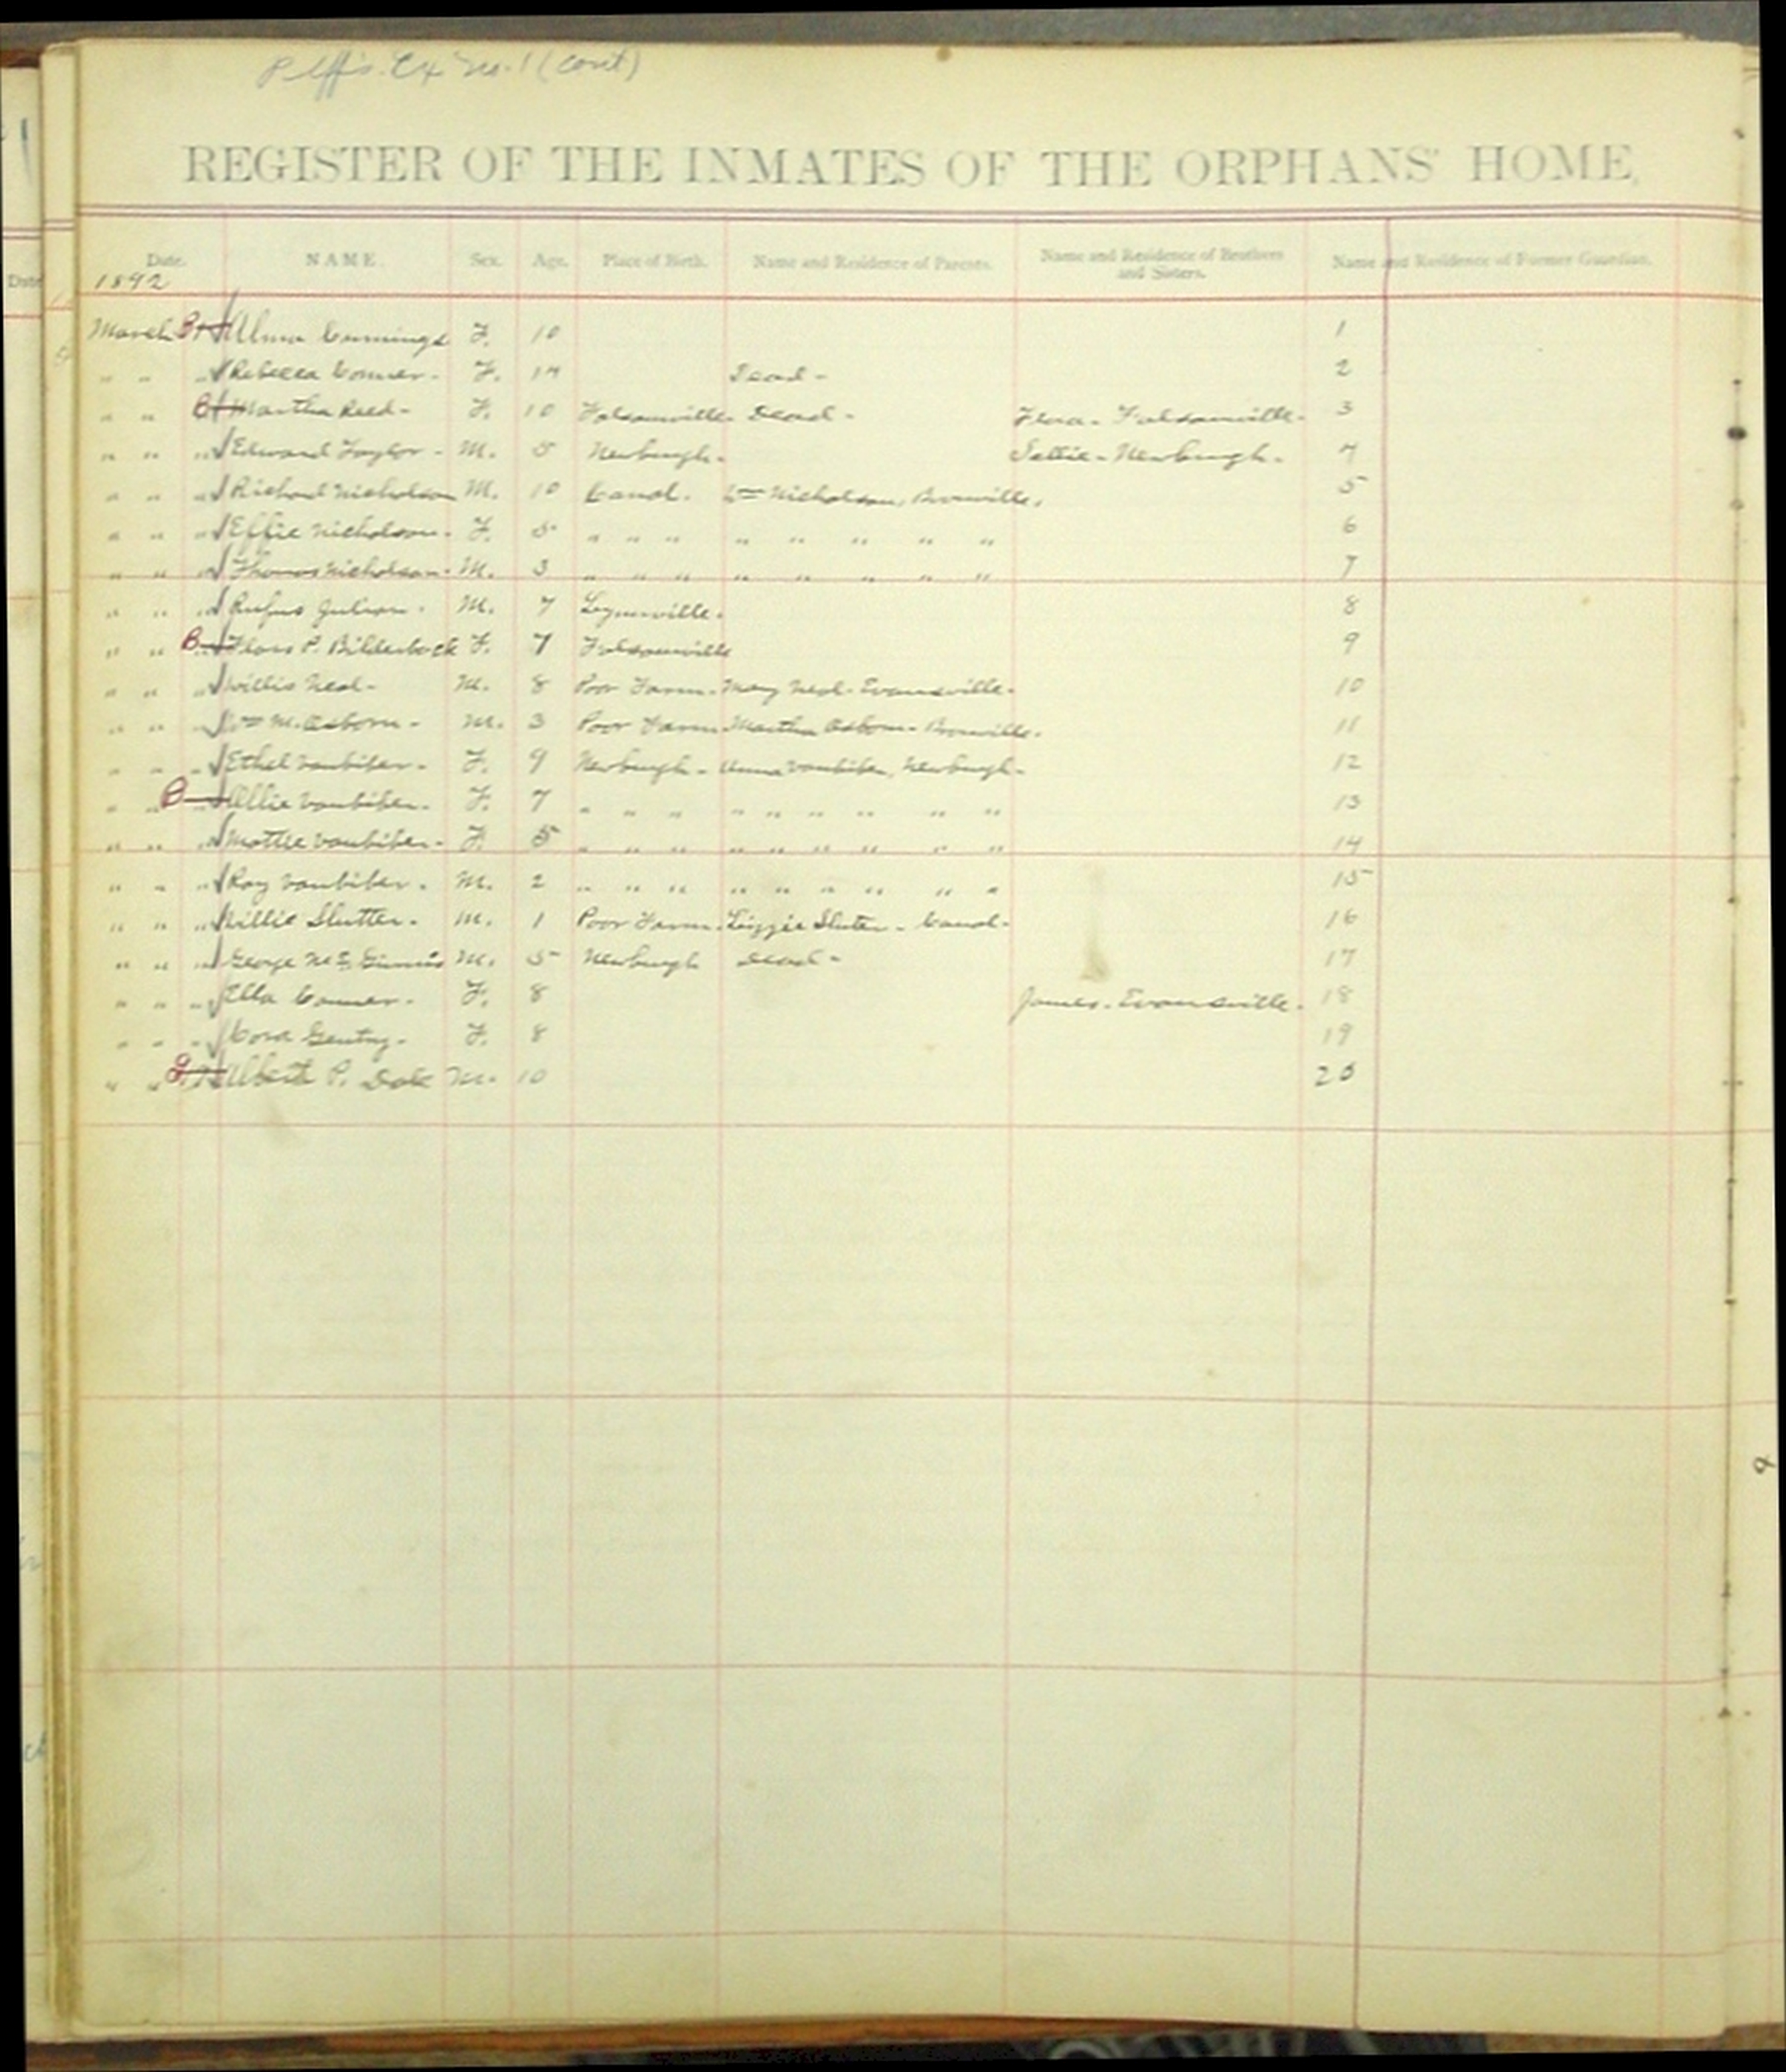 Plff's. Ex No. 1 (Cont)
REGISTER OF THE INMATES OF THE ORPHANS' HOME.
Date. NAME Sex. Age. Place of Birth. Name and Residence of Parents. Name and Residence of Brothers and Sisters. Name and Residence of Former Guardian.
Date
1892
March 31 Alma Cummings F. 10 1
" " " Rebecca Conner - F. 14 Dead - 2
" " Martha Reed - F. 10 Folsomville - Dead - Folsomville - 3
" " " Edward Taylor - M. 5 Newburgh - Newburgh - 4
" " " Richard Nicholson M. 10 Canal. Wm Nicholson, Boonville. 5
" " " Effie Nicholson - F. 5 " " " " " " " " 6
" " " Thomas Nicholson - M. 3 " " " " " " " " 7
" " " Rufus Julian - M. 7 Lynnville. 8
" " B " Flora P. Bilderback F. 7 Folsomville 9
" " " Willis Neal - M. 8 Poor Farm - Mary Neal - Evansville - 10
" " " Wm M. Osborn - M. 3 Poor Farm Martha Osborn - Boonville. 11
" " " Ethel Vanbiber - F. 9 Newburgh - Anna Vanbiber, Newburgh - 12
" " B " Ollie Vanbiber - F. 7 " " " " " " " " " 13
" " " Mattie Vanbiber - F. 5 " " " " " " " " " 14
" " " Roy Vanbiber - M. 2 " " " " " " " " " 15
" " " Willie Slutter - M. 1 Poor Farm. Lizzie Sluter - Canal - 16
" " " George McGinnis M. 5 Newburgh Dead - 17
" " " Ella Conner - F. 8 James - Evansville - 18
" " " Cora Gentry - F. 8 19
" " Albert P. Dale M. 10 20